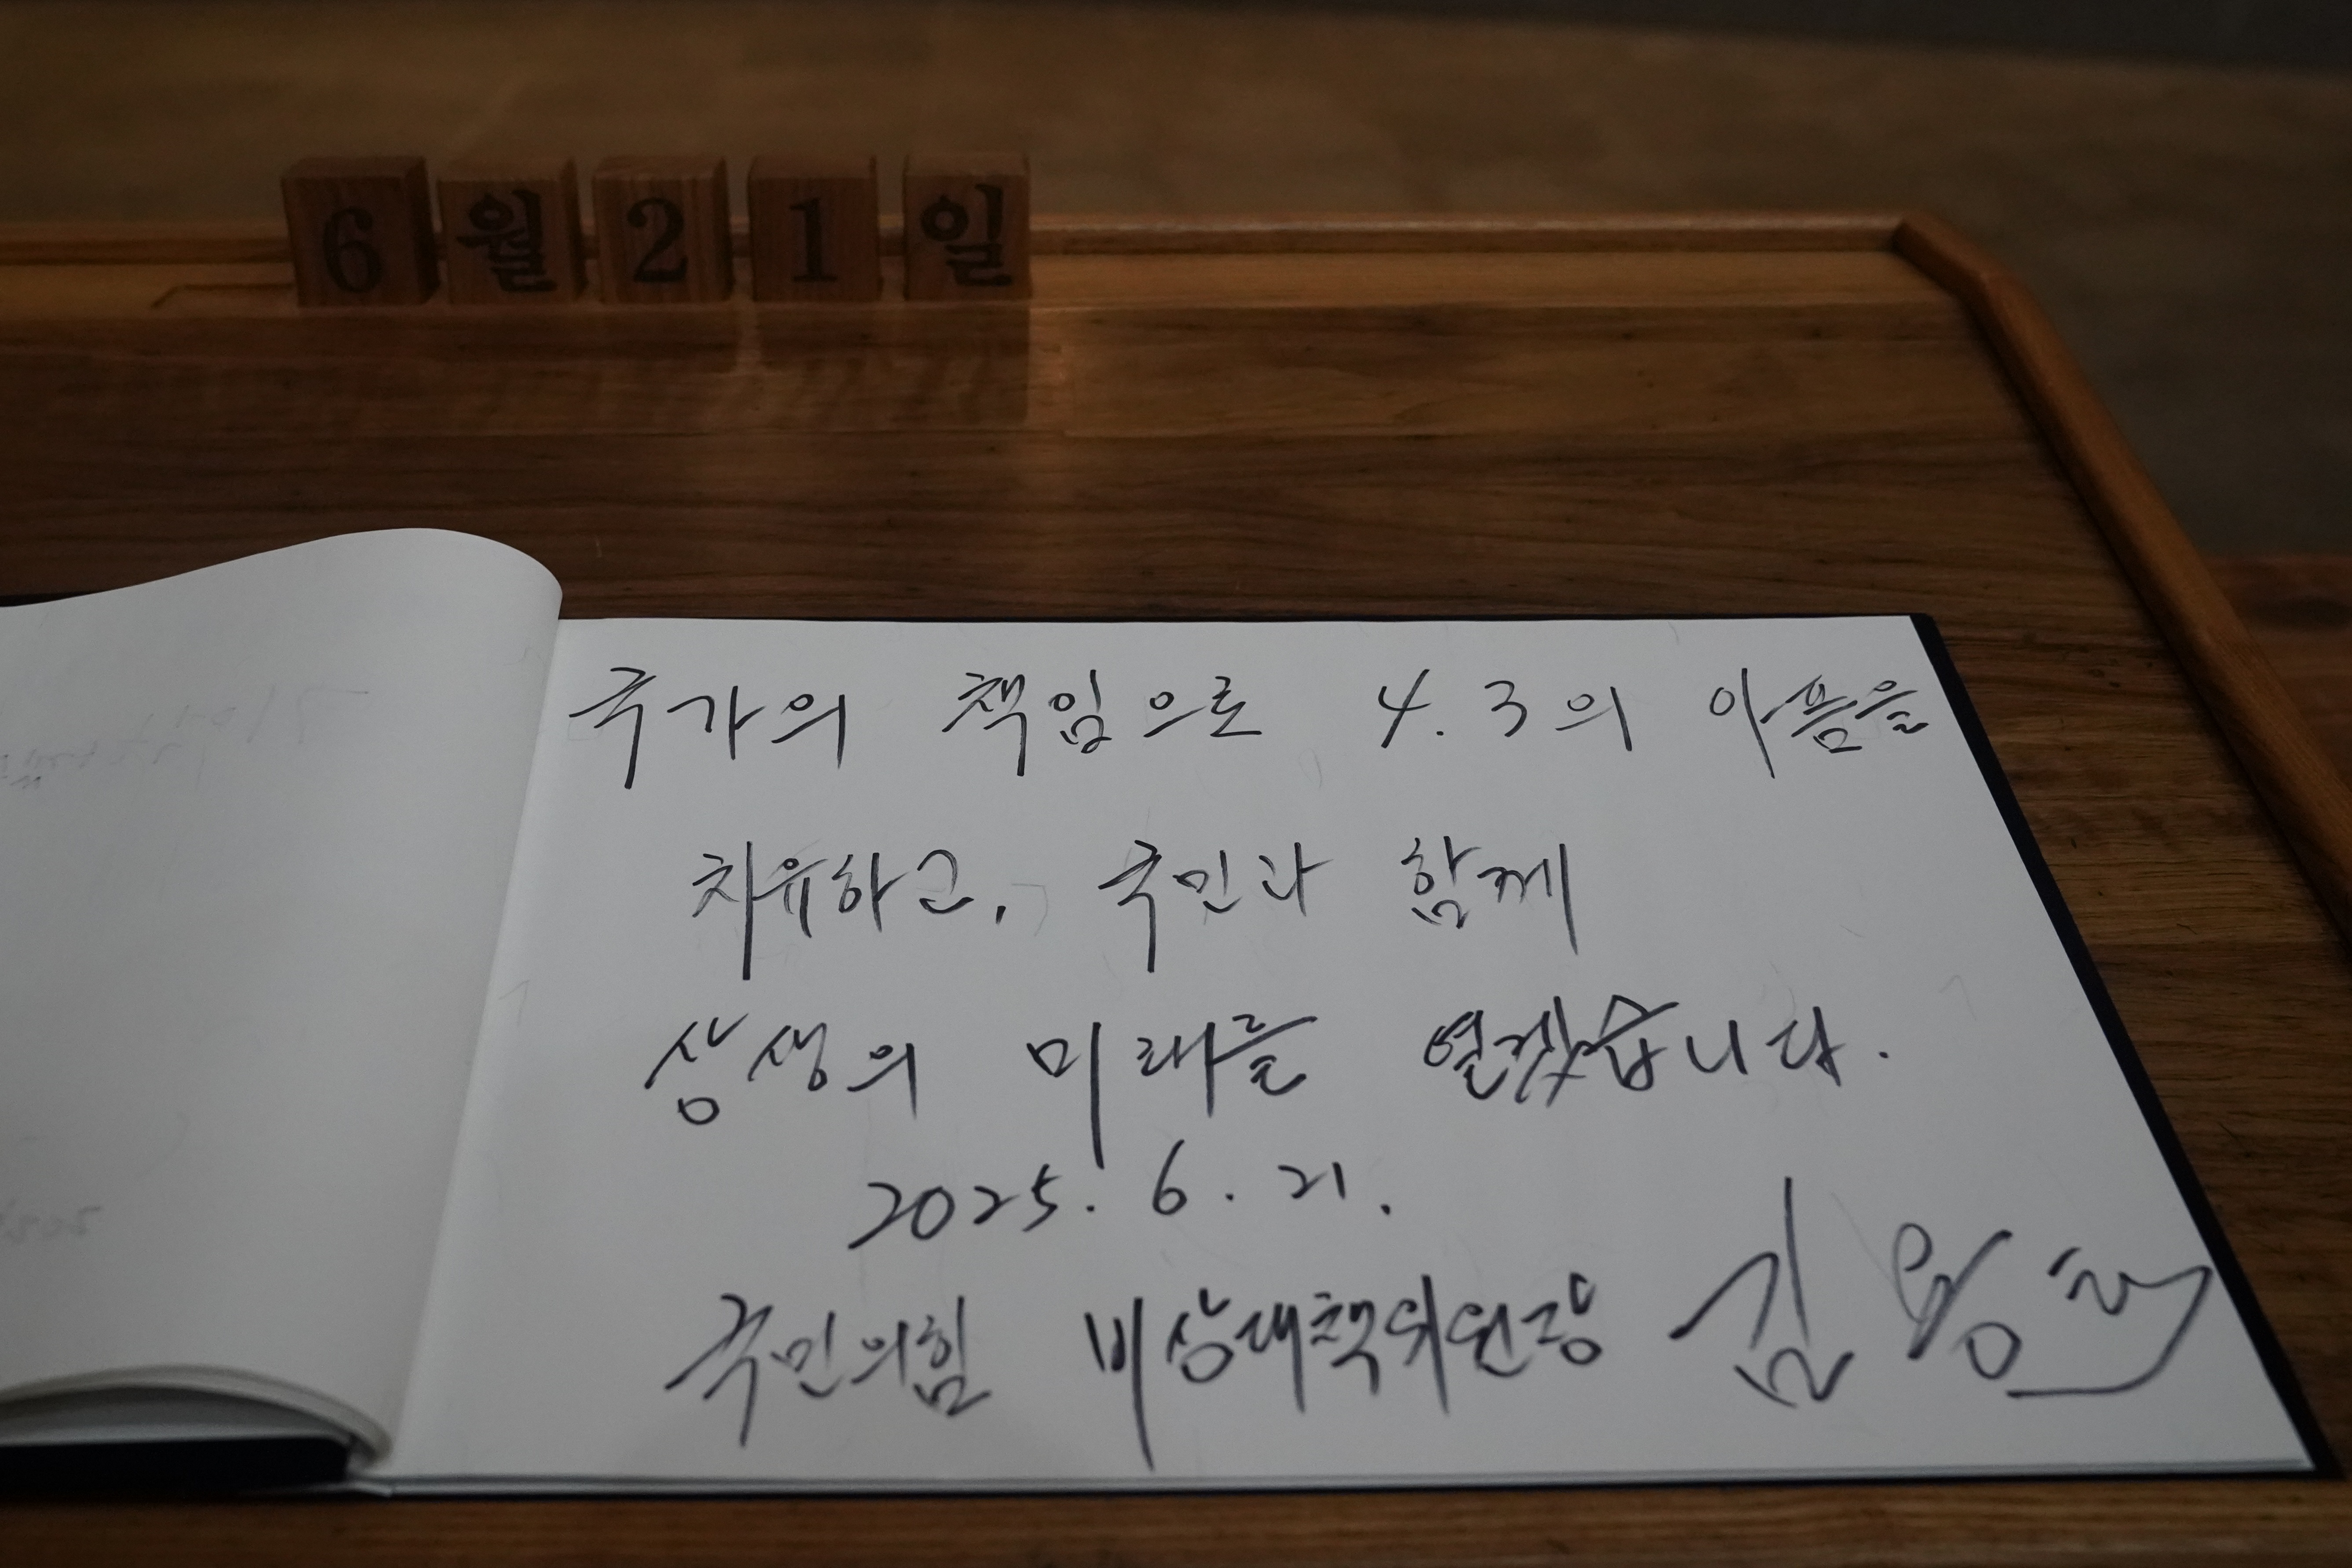 6월21일
국가의 책임으로 4.3의 아픔을
치유하고, 국민과 함께
상생의 미래를 열겠습니다.
2025. 6. 21.
국민의힘 비상대책위원장 김용태